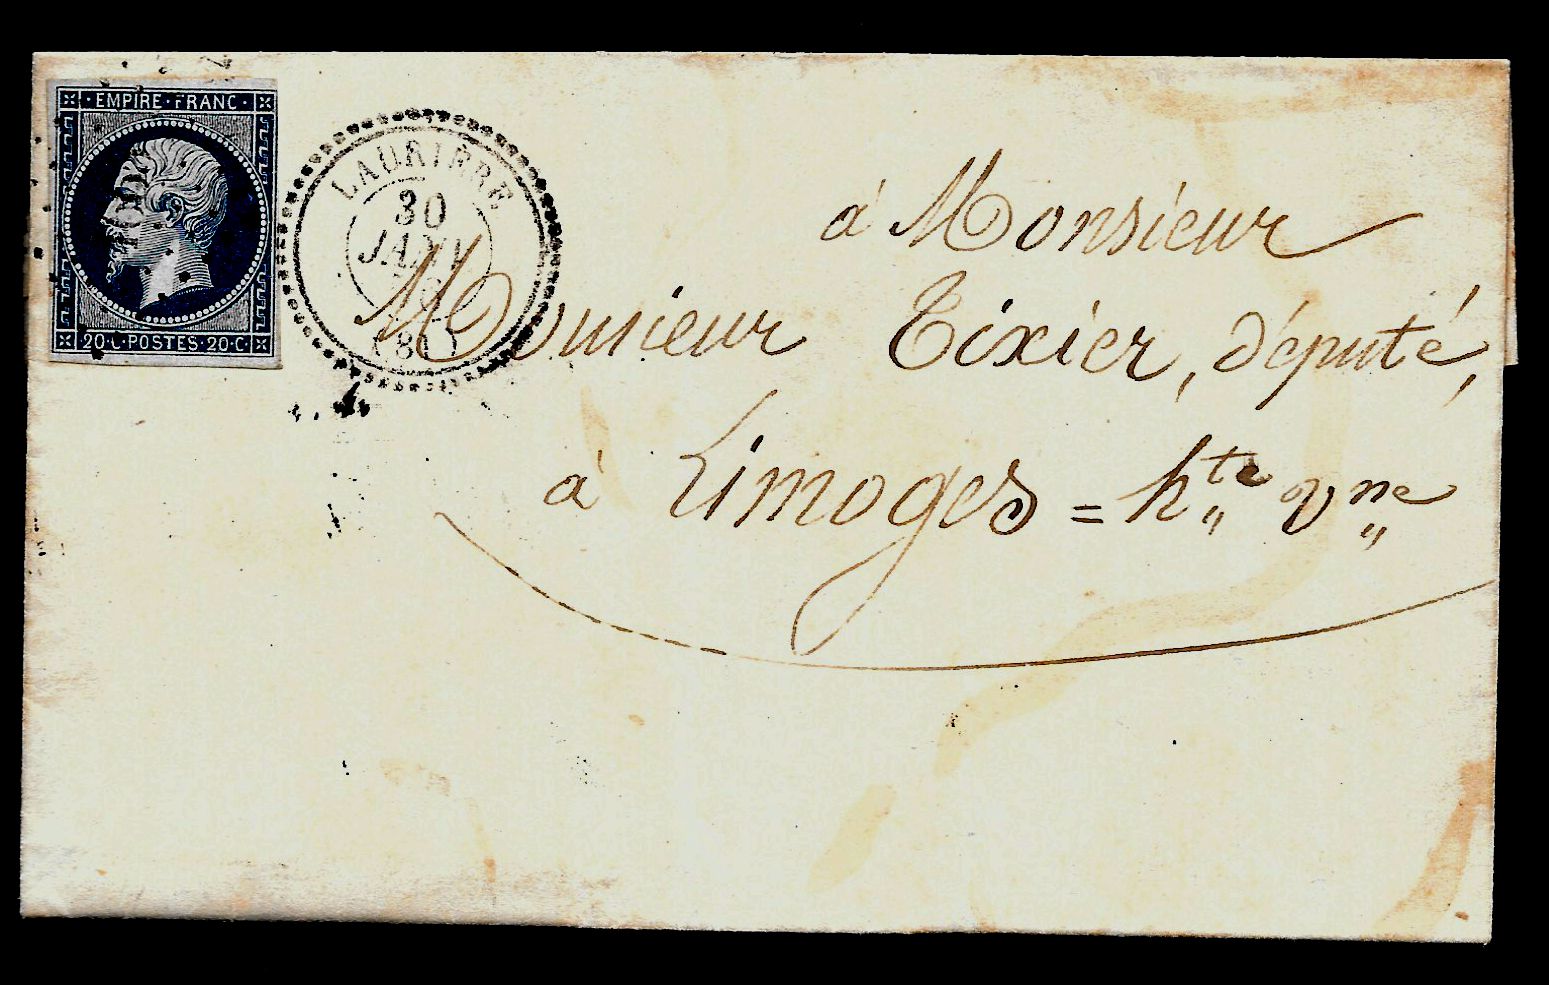 EMPIRE·FRANC·
20·C·POSTES·20·C
LAURIERE
30
JANV
(81)
à Monsieur
Monsieur Tixier, député,
à Limoges = hte vne